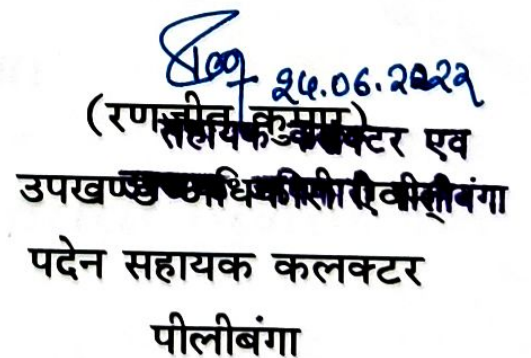 24.06.2022
(रणजीत कुमार)
सहायक कलक्टर एवं
उपखण्ड अधिकारी पीलीबंगा
पदेन सहायक कलक्टर
पीलीबंगा